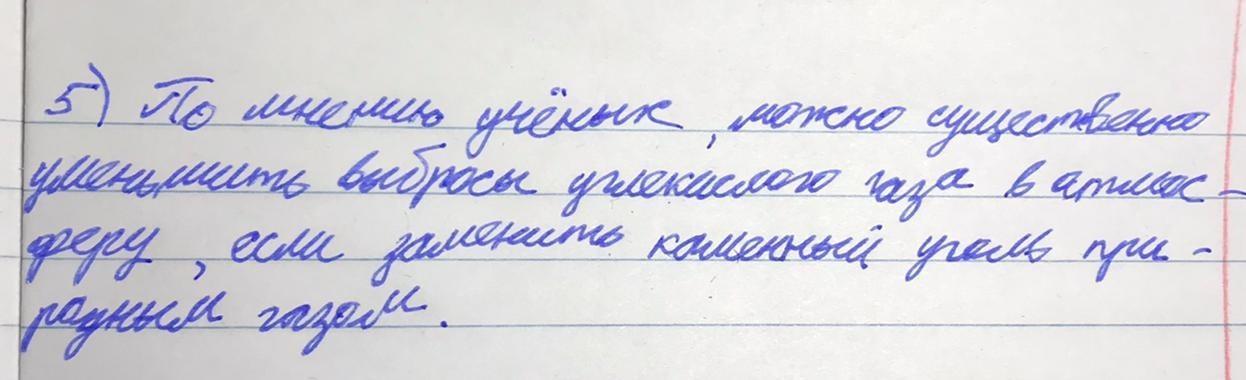 5) По мнению учёных, можно существенно
уменьшить выбросы углекислого газа в атмос-
феру, если заменить каменный уголь при-
родным газом.